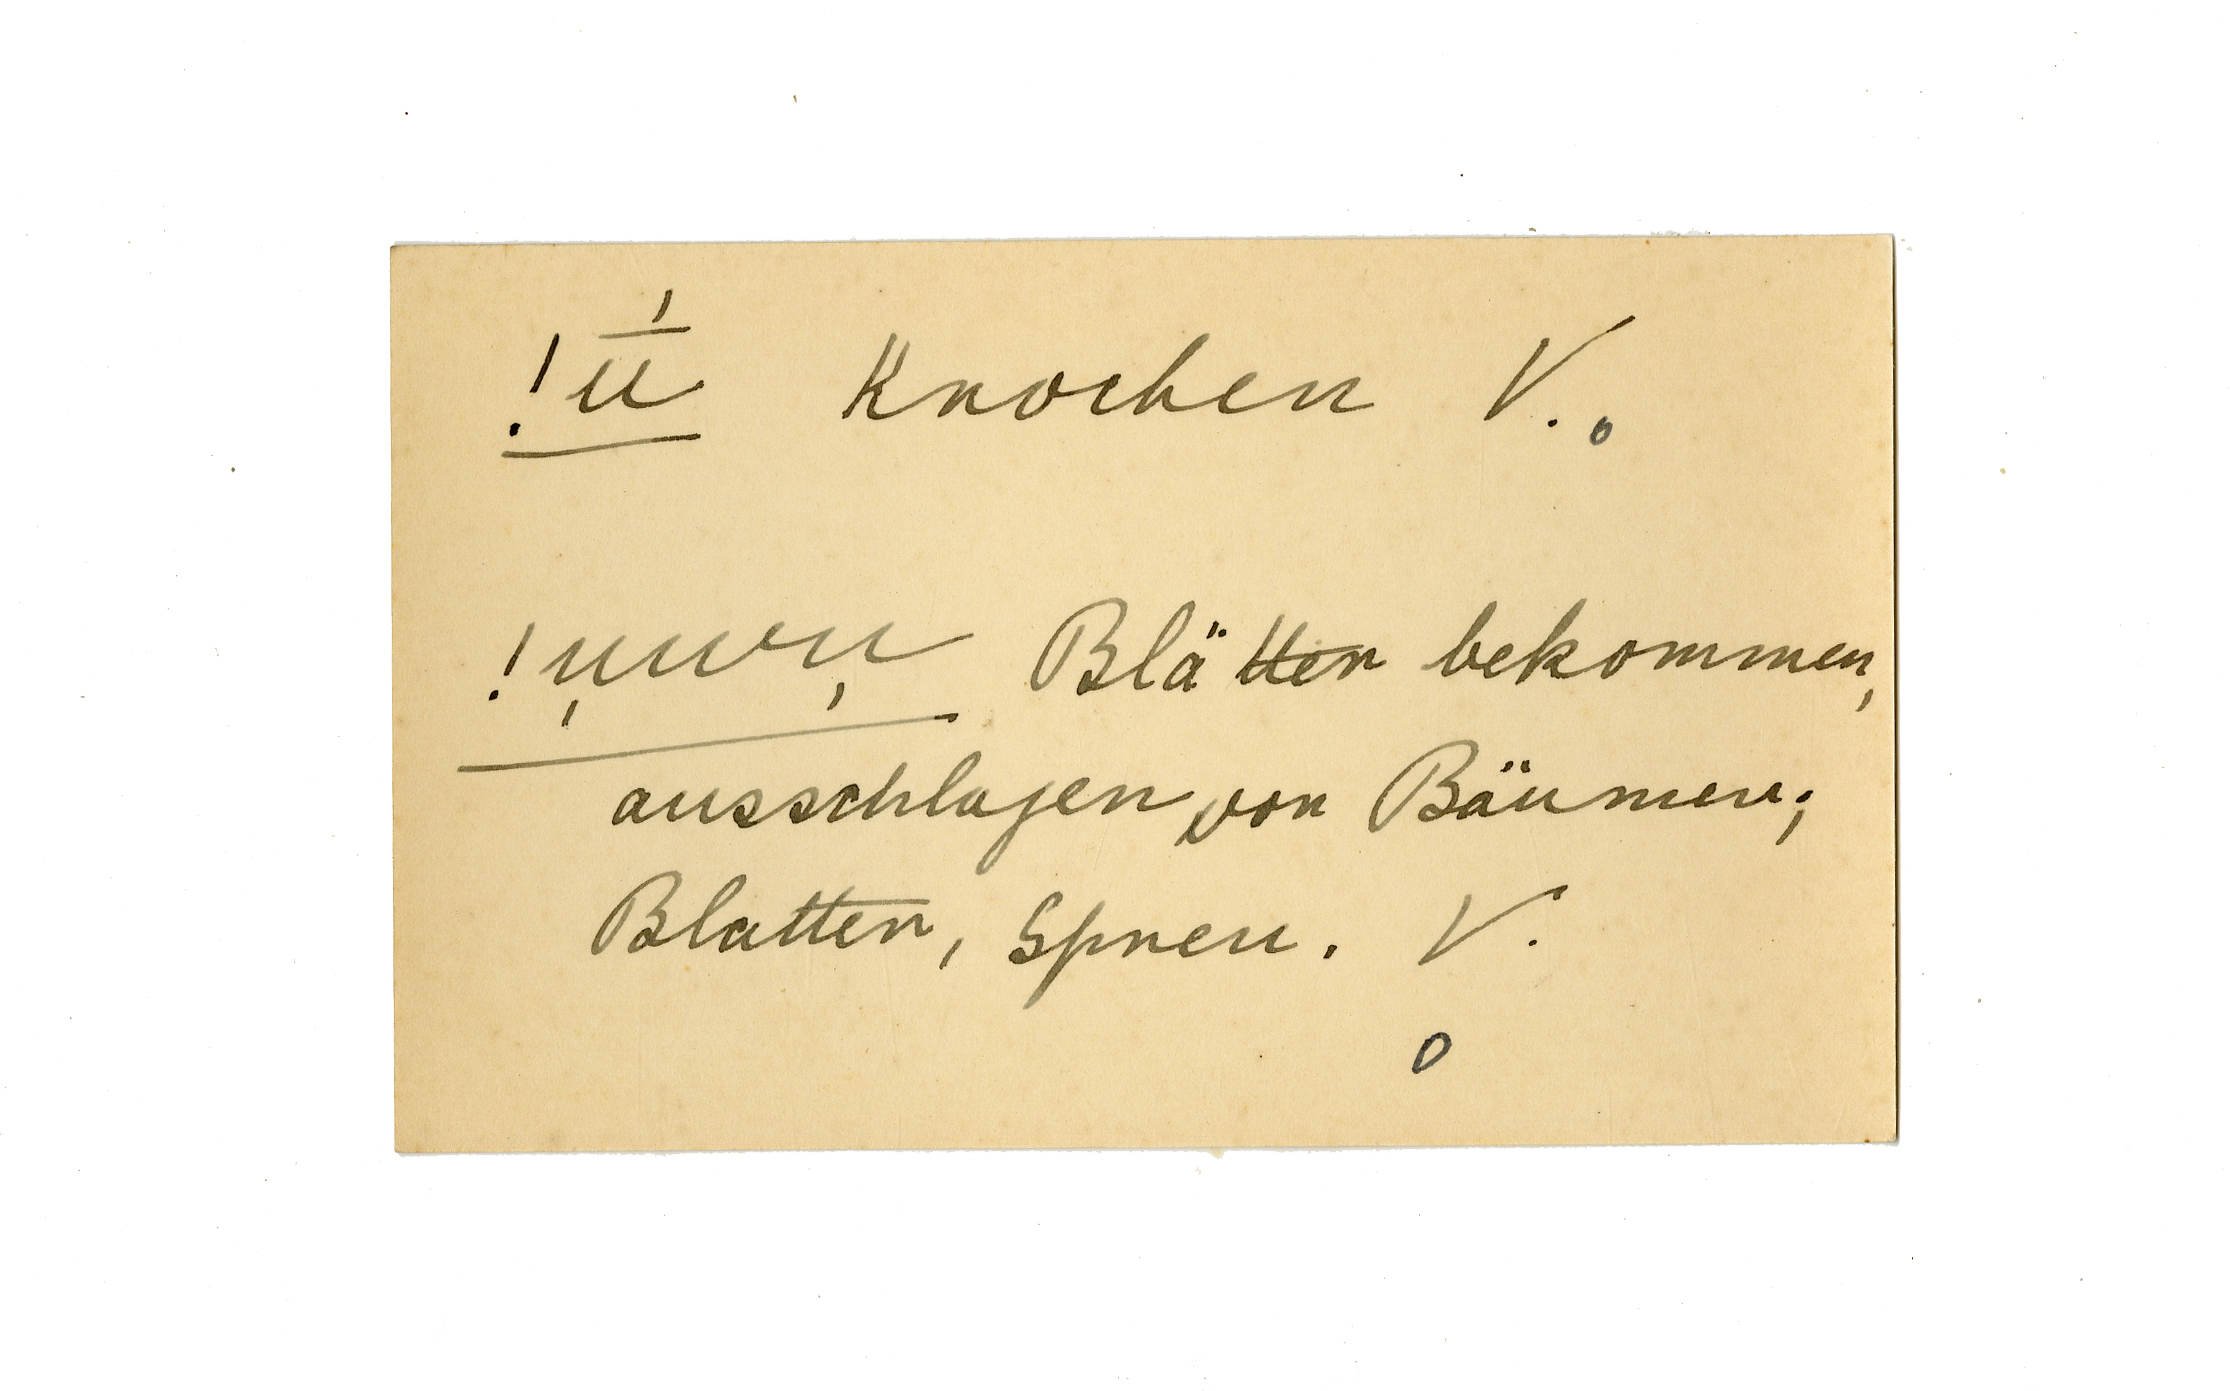 !ū́ Knochen V. o
Blätter bekommen,
ausschlagen von Bäumen;
Blatter, Spreu. V.
o